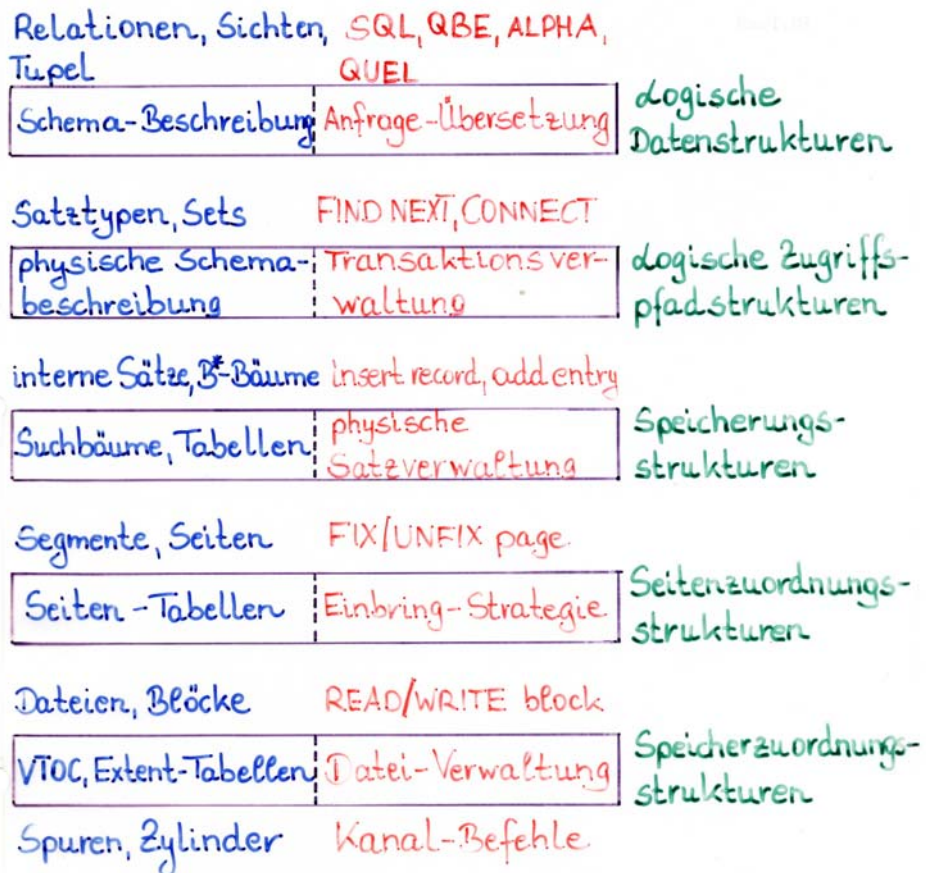 Relationen, Sichten, SQL, QBE, ALPHA,
Tupel QUEL
Schema-Beschreibung Anfrage-Übersetzung
Logische
Datenstrukturen
Satztypen, Sets FIND NEXT, CONNECT
physische Schema- Transaktionsver-
beschreibung waltung
Logische Zugriffs-
pfadstrukturen
interne Sätze, B*-Bäume insert record, add entry
Suchbäume, Tabellen
physische
Satzverwaltung
Speicherungs-
strukturen
Segmente, Seiten FIX/UNFIX page
Seiten-Tabellen Einbring-Strategie
Seitenzuordnungs-
strukturen
Dateien, Blöcke READ/WRITE block
VTOC, Extent-Tabellen Datei-Verwaltung
Speicherzuordnungs-
strukturen
Spuren, Zylinder Kanal-Befehle